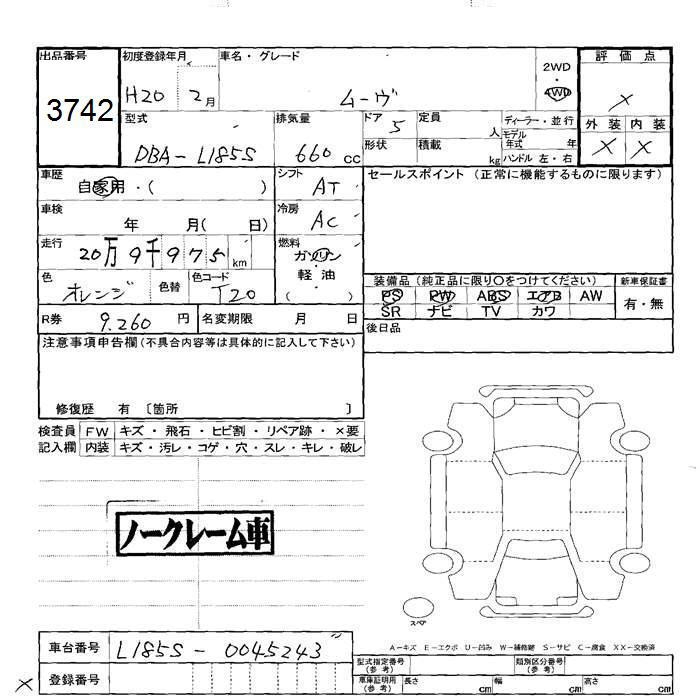 出品番号 初度登録年月 車名・グレード 2WD・4WD 評価点
3742 H20 2月 ムーヴ ×
型式 排気量 ドア 5 定員 人 ディーラー・並行 外装 内装
DBA-L185S 660cc 形状 積載 kg モデル年式 年 ハンドル 左・右 × ×
車歴 自家用・( ) シフト AT セールスポイント (正常に機能するものに限ります)
車検 年 月( 日) 冷房 AC
走行 20万9千975km 燃料 ガソリン・軽油 ( )
色 オレンジ 色替 色コード T20
装備品 (純正品に限り○をつけてください) 新車保証書
PS PW ABS エアB AW 有・無
SR ナビ TV カワ
R券 9.260円 名変期限 月 日 後日品
注意事項申告欄(不具合内容等は具体的に記入して下さい)
修復歴 有 〔箇所 〕
検査員 FW キズ・飛石・ヒビ割・リペア跡・×要
記入欄 内装 キズ・汚レ・コゲ・穴・スレ・キレ・破レ
ノークレーム車
スペア
車台番号 L185S-0045243
A-キズ E-エクボ U-凹み W-補修跡 S-サビ C-腐食 XX-交換済
型式指定番号(参考) 類別区分番号(参考)
× 登録番号 車庫証明用(参考) 長さ cm 幅 cm 高さ cm